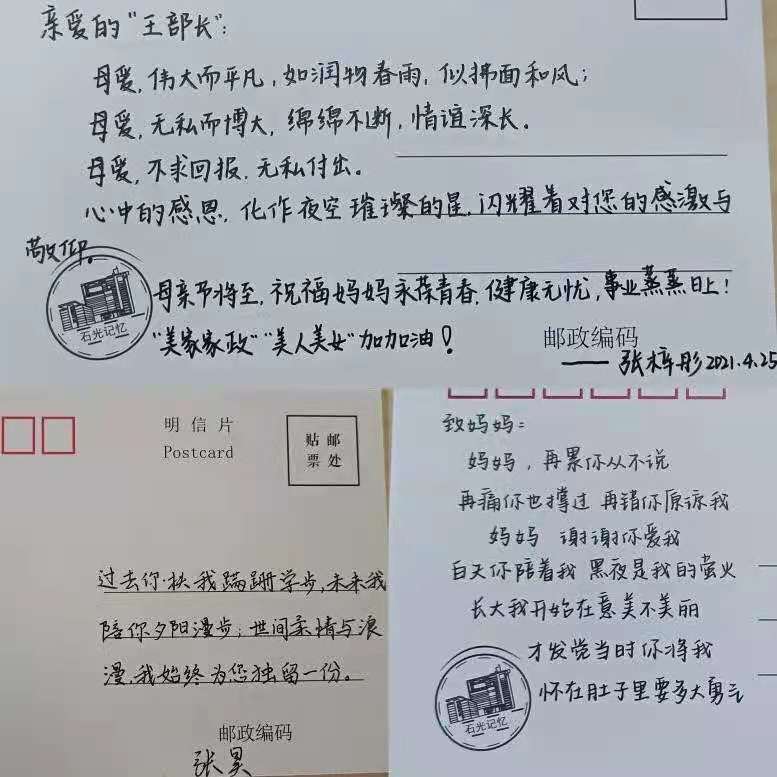 亲爱的“王部长”:
母爱,伟大而平凡,如润物春雨,似拂面和风;
母爱,无私而博大,绵绵不断,情谊深长。
母爱,不求回报,无私付出。
心中的感恩,化作夜空璀璨的星,闪耀着对您的感激与
敬仰。
母亲节将至,祝福妈妈永葆青春,健康无忧,事业蒸蒸日上!
“美家家政”“美人美女”加加油!
石光记忆
邮政编码
——张梓彤2021.4.25
明信片
Postcard
贴邮
票处
过去你扶我蹒跚学步,未来我
陪你夕阳漫步;世间柔情与浪
漫,我始终为您独留一份。
邮政编码
张昊
致妈妈:
妈妈,再累你从不说
再痛你也撑过 再错你原谅我
妈妈 谢谢你爱我
白天你陪着我 黑夜是我的萤火
长大我开始在意美不美丽
才发觉当时你将我
怀在肚子里要多大勇气
石光记忆